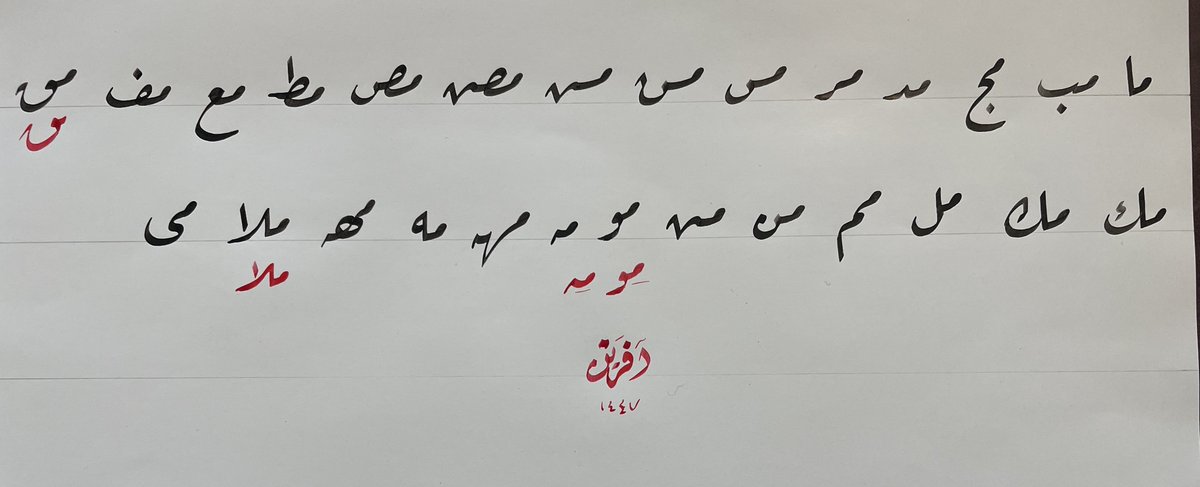 ما مب مج مد مر مس مس مس مص مص مط مع مف مق
مق
مك مك مل مم من من مو مه مهـ مه مهـ ملا مى
مو مه ملا
آفرين
١٤٤٧